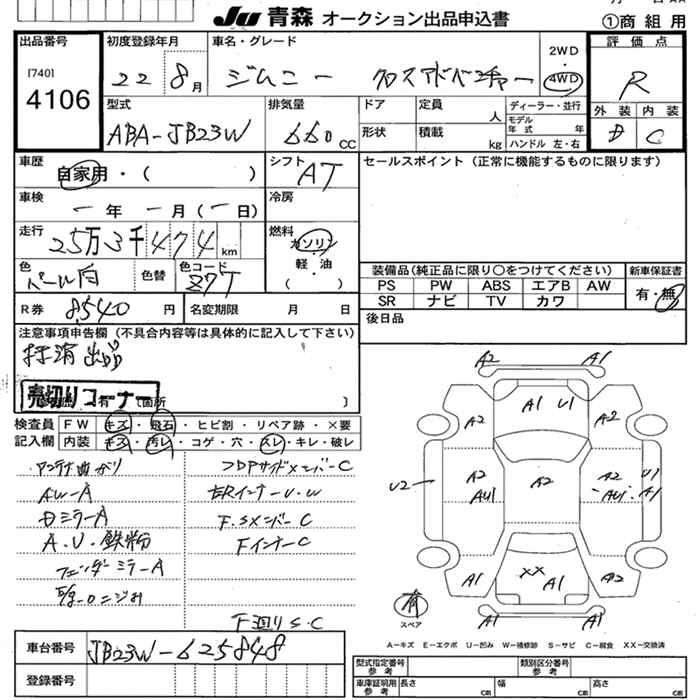 Ju 青森 オークション出品申込書
①商組用
出品番号
[740]
4106
初度登録年月
22 8月
車名・グレード
ジムニー クロスアドベンチャー
2WD
・
4WD
評価点
R
型式
ABA-JB23W
排気量
660 CC
ドア
定員
人
形状
積載
kg
ディーラー・並行
モデル年式 年
ハンドル 左・右
外装
D
内装
C
車歴
自家用・( )
シフト
AT
車検
一年一月(一日)
冷房
走行
25万3千474 km
燃料
ガソリン
軽・油
( )
色
パール白
色替
色コード
Z7T
R券
8540 円
名変期限 月 日
セールスポイント (正常に機能するものに限ります)
装備品(純正品に限り○をつけてください)
PS PW ABS エアB AW
SR ナビ TV カワ
新車保証書
有・無
後日品
注意事項申告欄 (不具合内容等は具体的に記入して下さい)
抹消出品
売切りコーナー
有 箇所 )
検査員
記入欄
FW キズ・飛石・ヒビ割・リペア跡・×要
内装 キズ・汚レ・コゲ・穴・スレ・キレ・破レ
アンテナ曲がり
AW-A
DミラーA
A.U.鉄粉
フェンダーミラーA
FDPサイドメンバーC
右RインナーU.W
F.SメンバーC
FインナーC
F廻りS.C
A2 A1
A1 U1
A2 A2
A2 A2 A2 U1
U2 AU1 AU1 A1
A1 XX A1 A2
A1 A1
有
スペア
A=キズ E=エクボ U=凹み W=補修跡 S=サビ C=腐食 XX=交換済
車台番号
JB23W-625848
登録番号
型式指定番号
参考
類別区分番号
参考
車庫証明用
参考
長さ cm
幅 cm
高さ cm